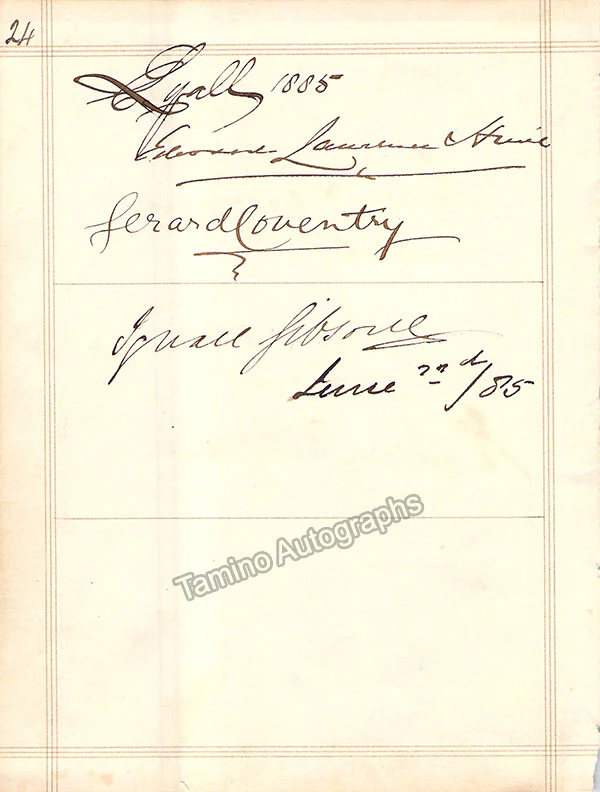 24
Lyall 1885
Edward Laurence
Gerard Coventry
Ignace Gibsone
June 22d/85
Tamino Autographs